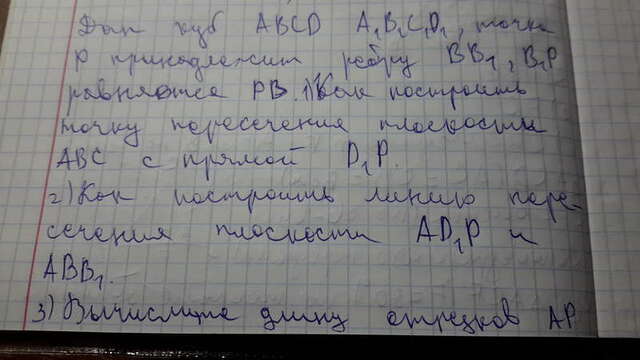 Дан куб ABCD A₁B₁C₁D₁, точка
P принадлежит ребру BB₁, B₁P
равняется PB. 1) Как построить
точку пересечения плоскости
ABC с прямой D₁P.
2) Как построить линию пере-
сечения плоскости AD₁P и
ABB₁.
3) Вычислите длину отрезков AP